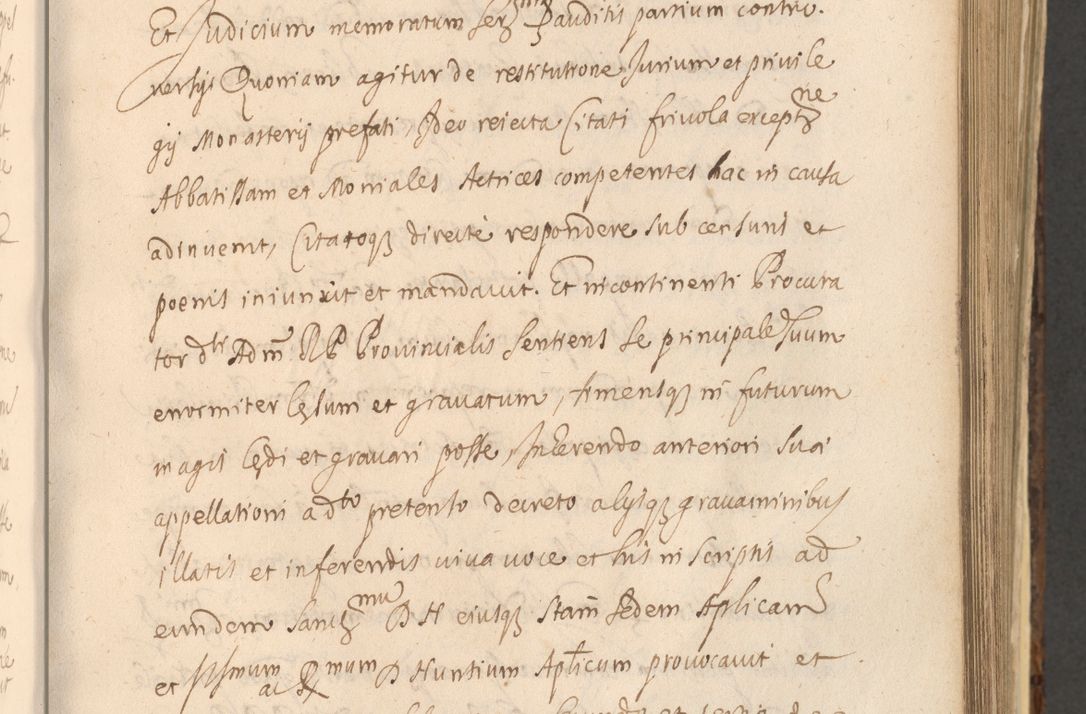 Et Judicium memoratum Ser auditis partium contro.
versijs Quoniam agitur de restitutione Jurium et privile
gij Monasterij prefati, Ideo reiecta Citati frivola except ne
Abbatissam et Moniales Actrices competentes hac in causa
adinvenit, Citatoq3 directè respondere sub censuris et
poenis iniunxit et mandavit. Et incontinenti Procura
tor dti Adm RP Provincialis sentiens se principalem suum
enormiter lęsum et gravatum, timensq3 in futurum
magis lędi et gravari posse, Inherendo anteriori suæ
appellationi a dto pretenso decreto alijsq3 gravaminibus
illatis et inferendis viva voce et his in scriptis ad
eundem Sanc mu D N eiusq3 Stam sedem Aplicam
et Illmum ac R mum D Nuntium Aplicum provocavit et
et